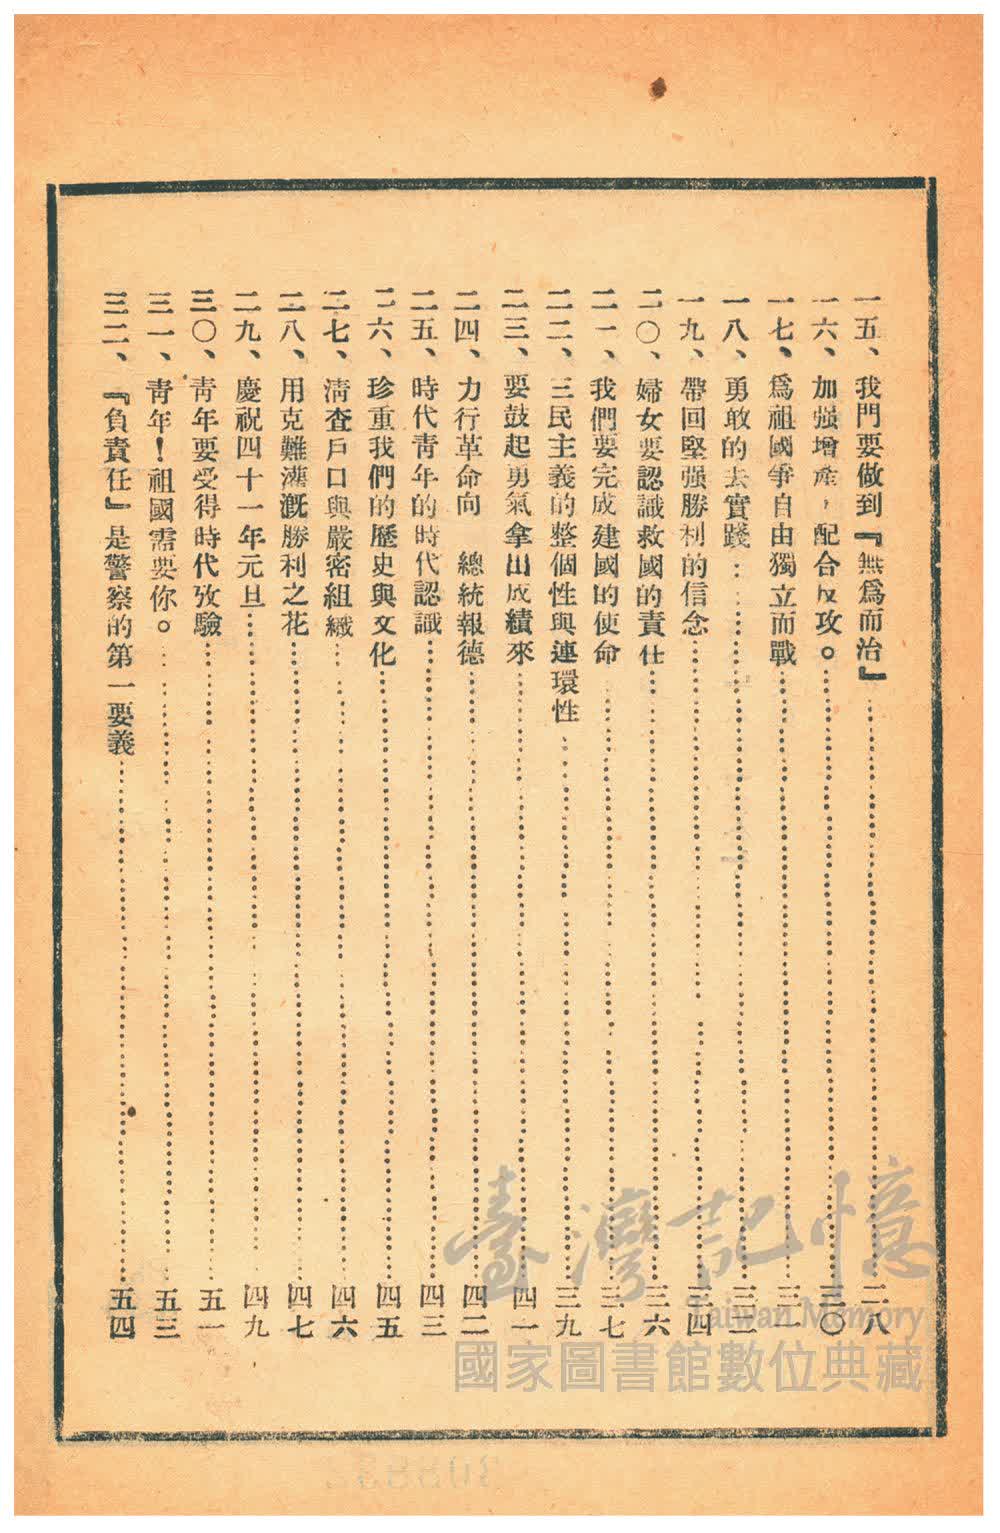 一五、我門要做到『無爲而治』……二八
一六、加强增產，配合反攻。……三〇
一七、爲祖國爭自由獨立而戰……三一
一八、勇敢的去實踐……三二
一九、帶回堅强勝利的信念……三四
二〇、婦女要認識救國的責任……三六
二一、我們要完成建國的使命……三七
二二、三民主義的整個性與連環性……三九
二三、要鼓起勇氣拿出成績來……四一
二四、力行革命向　總統報德……四二
二五、時代青年的時代認識……四三
二六、珍重我們的歷史與文化……四五
二七、清查戶口與嚴密組織……四六
二八、用克難灌漑勝利之花……四七
二九、慶祝四十一年元旦……四九
三〇、青年要受得時代攷驗……五一
三一、青年！祖國需要你。……五三
三二、『負責任』是警察的第一要義……五四
臺灣記憶
Taiwan Memory
國家圖書館數位典藏